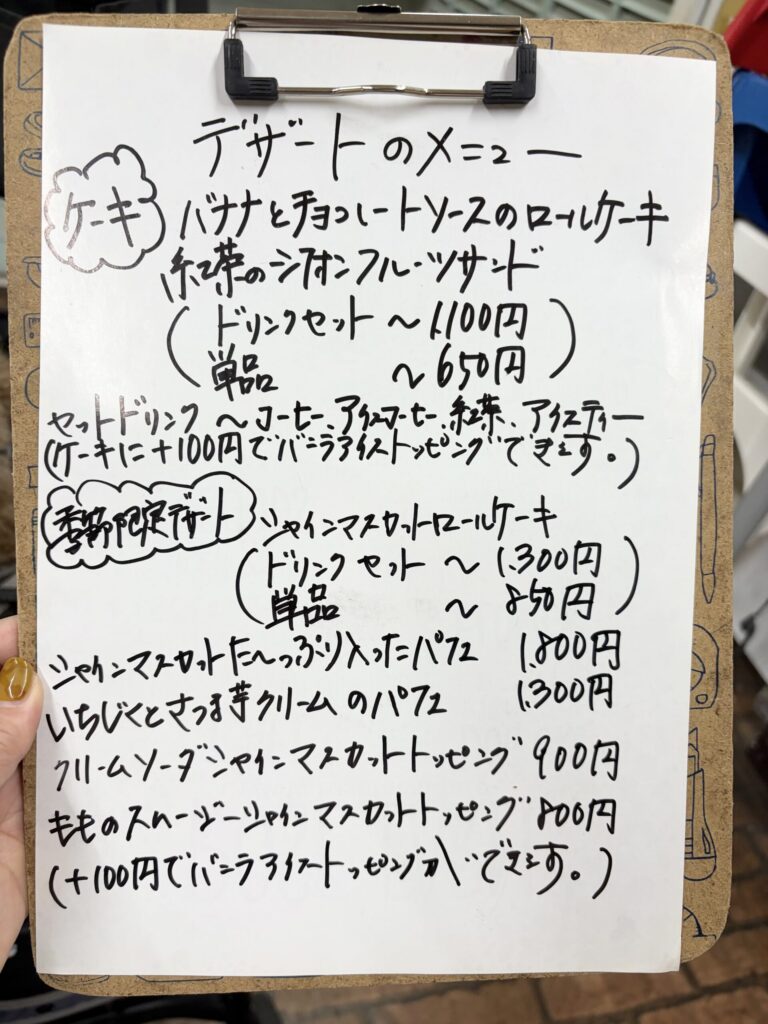 デザートのメニュー
ケーキ
バナナとチョコレートソースのロールケーキ
紅茶のシフォンフルーツサンド
(ドリンクセット 〜 1,100円
単品 〜 650円)
セットドリンク 〜 コーヒー、アイスコーヒー、紅茶、アイスティー
(ケーキに+100円でバニラアイストッピングできます。)
季節限定デザート
シャインマスカットロールケーキ
(ドリンクセット 〜 1.300円
単品 〜 850円)
シャインマスカットた〜っぷり入ったパフェ 1.800円
いちじくとさつま芋クリームのパフェ 1.300円
クリームソーダシャインマスカットトッピング 900円
もものスムージーシャインマスカットトッピング 800円
(+100円でバニラアイストッピングができます。)